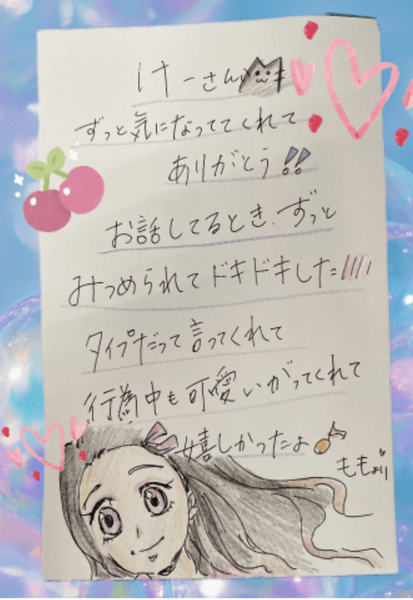 けーさん
ずっと気になっててくれて
ありがとう!!
お話してるとき、ずっと
みつめられてドキドキした
タイプだって言ってくれて
行為中も可愛いがってくれて
嬉しかったよ♪
ももより